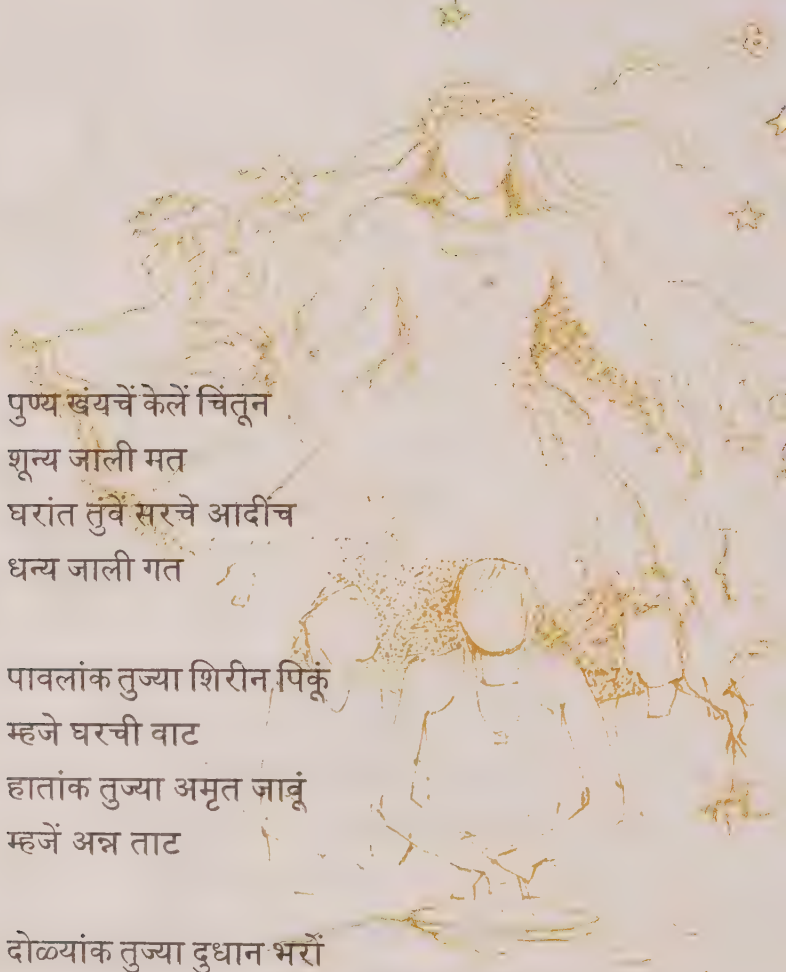 पुण्य खंयचें केलें चिंतून
शून्य जाली मत
घरांत तुंवें सरचे आदींच
धन्य जाली गत
पावलांक तुज्या शिरीन पिकूं
म्हजे घरची वाट
हातांक तुज्या अमृत जावूं
म्हजें अन्न ताट
दोळ्यांक तुज्या दुधान भरों